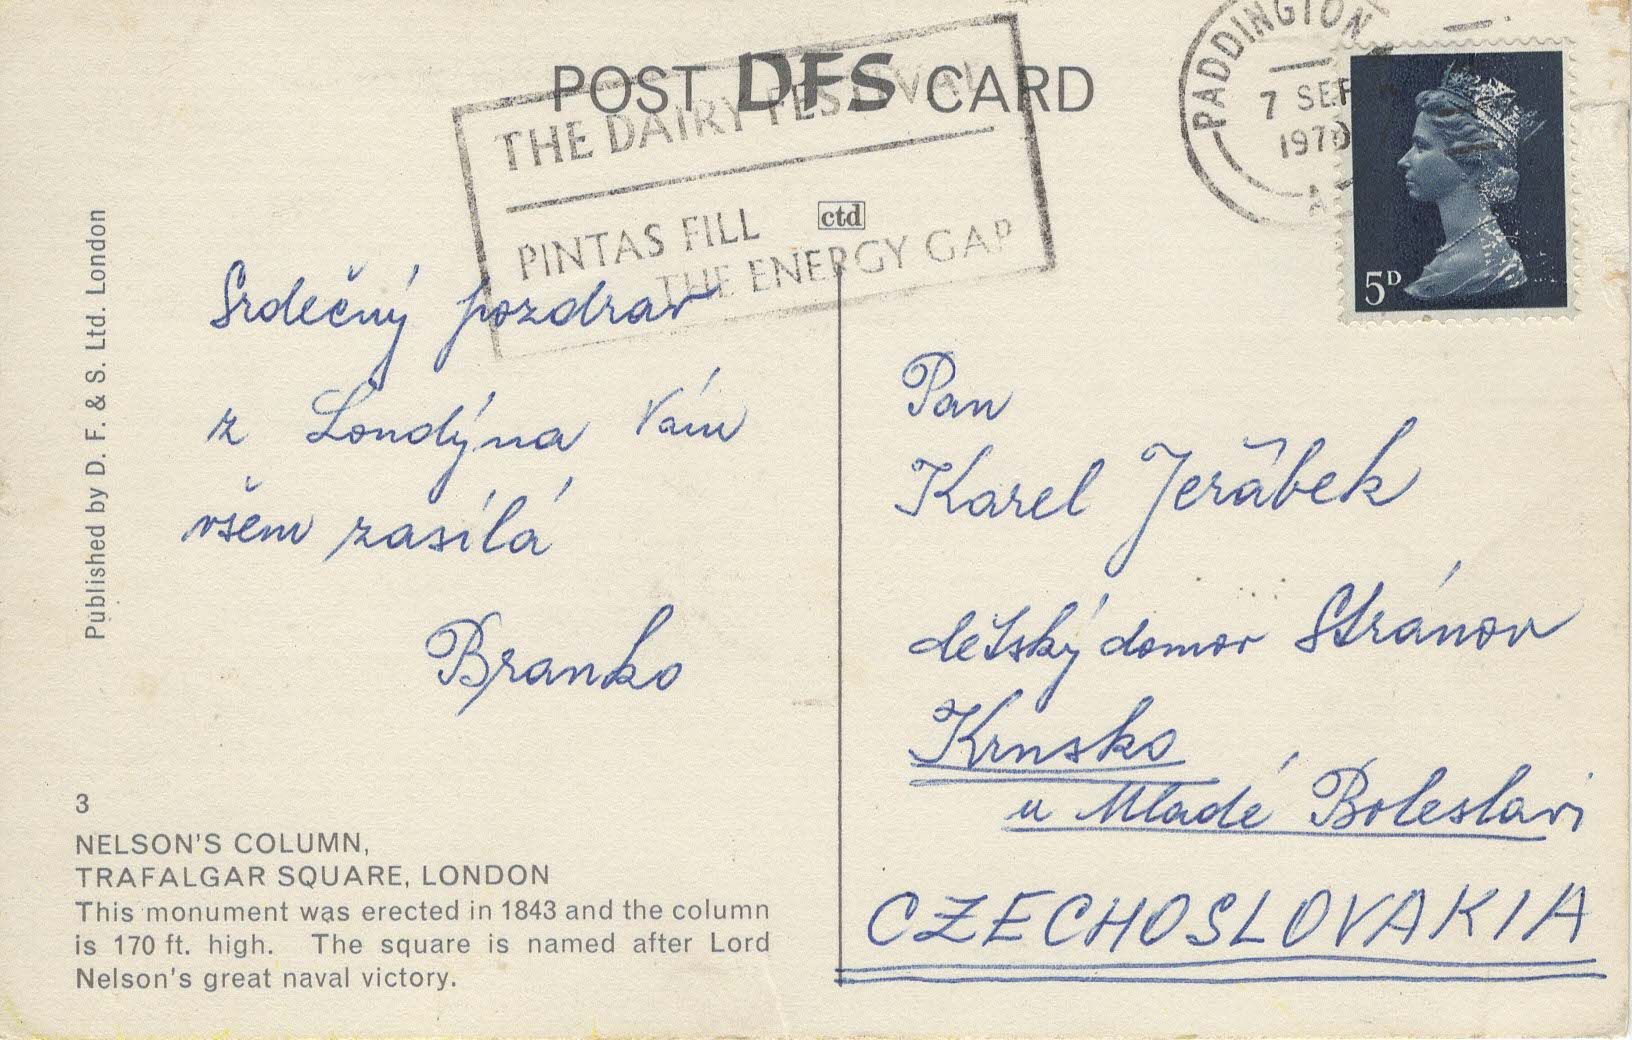 POST DFS CARD
THE DAIRY FESTIVAL
PINTAS FILL
THE ENERGY GAP
PADDINGTON
7 SEP
1970
A
5D
ctd
Published by D. F. & S. Ltd. London
Srdečný pozdrav
z Londýna Vám
všem zasílá
Branko
3
NELSON'S COLUMN,
TRAFALGAR SQUARE, LONDON
This monument was erected in 1843 and the column
is 170 ft. high. The square is named after Lord
Nelson's great naval victory.
Pan
Karel Jeřábek
dětský domov Stránov
Krnsko
u Mladé Boleslavi
CZECHOSLOVAKIA